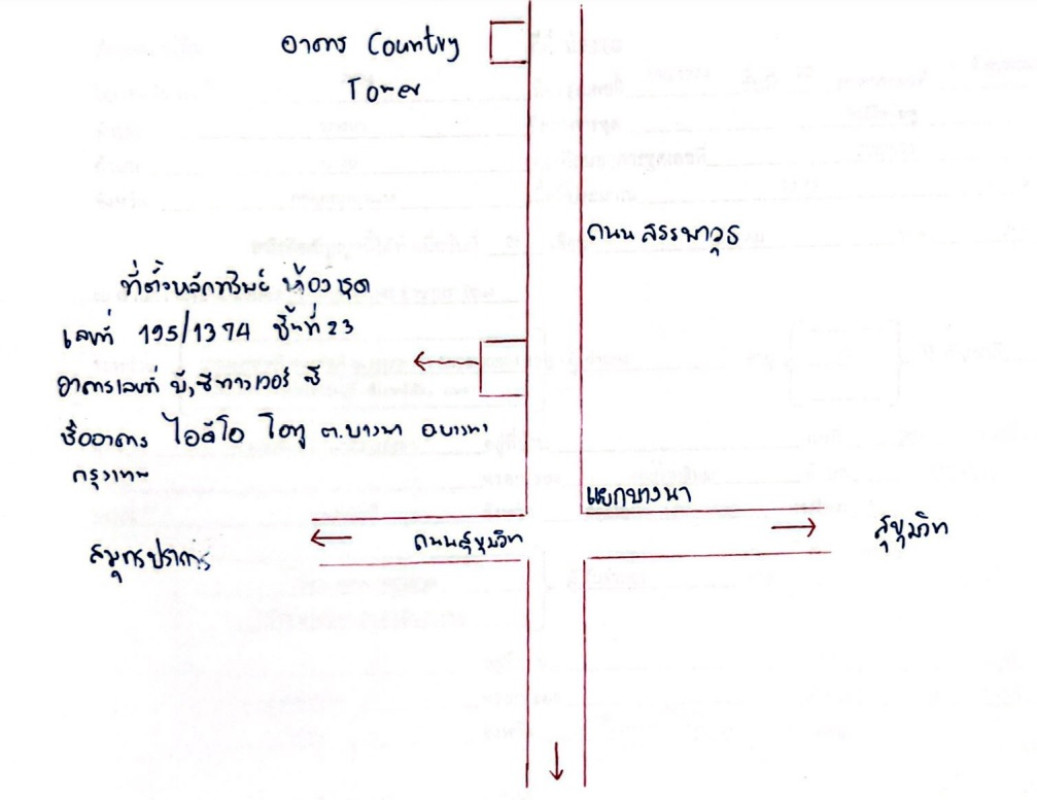 อาคาร Country
Tower
ถนน สรรพาวุธ
ที่ตั้งหลักทรัพย์ ห้องชุด
เลขที่ 195/1374 ชั้นที่ 23
อาคารเลขที่ บี,ซี ทาวเวอร์ ซี
ชื่ออาคาร ไอดีโอ โอทู ต.บางนา อ.บางนา
กรุงเทพ
แยกบางนา
ถนนสุขุมวิท
สุขุมวิท
สมุทรปราการ